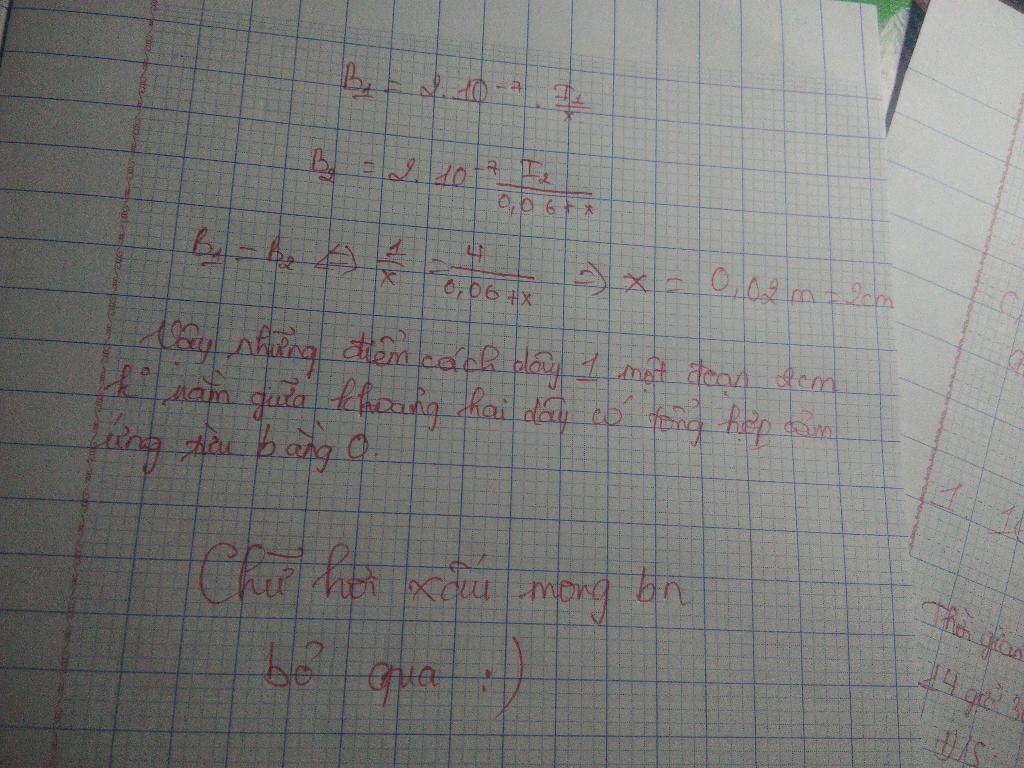 B₁ = 2.10⁻⁷ . I₁/x
B₂ = 2.10⁻⁷ I₂/0,06+x
B₁ = B₂ <=> 1/x = 4/0,06+x => x = 0,02m = 2cm
Vậy những điểm cách dây 1 một đoạn 2cm
k° nằm giữa khoảng hai dây có tổng hợp cảm
ứng từ bằng 0.
Chữ hơi xấu mong bn
bỏ qua :)
1
Thời gian
14 giờ